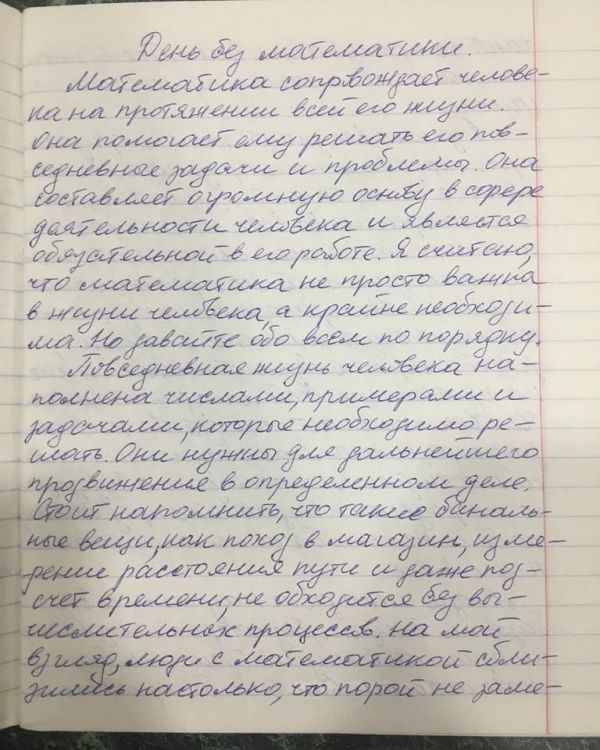 День без математики.
Математика сопровождает челове-
ка на протяжении всей его жизни.
Она помогает ему решать его пов-
седневные задачи и проблемы. Она
составляет огромную основу в сфере
деятельности человека и является
обязательной в его работе. Я считаю,
что математика не просто важна
в жизни человека, а крайне необходи-
ма. Но давайте обо всем по порядку.
Повседневная жизнь человека на-
полнена числами, примерами и
задачами, которые необходимо ре-
шать. Они нужны для дальнейшего
продвижения в определенном деле.
Стоит напомнить, что такие баналь-
ные вещи, как поход в магазин, изме-
рение расстояния пути и даже под-
счет времени, не обходится без вы-
числительных процессов. На мой
взгляд, люди с математикой сбли-
зились настолько, что порой не заме-